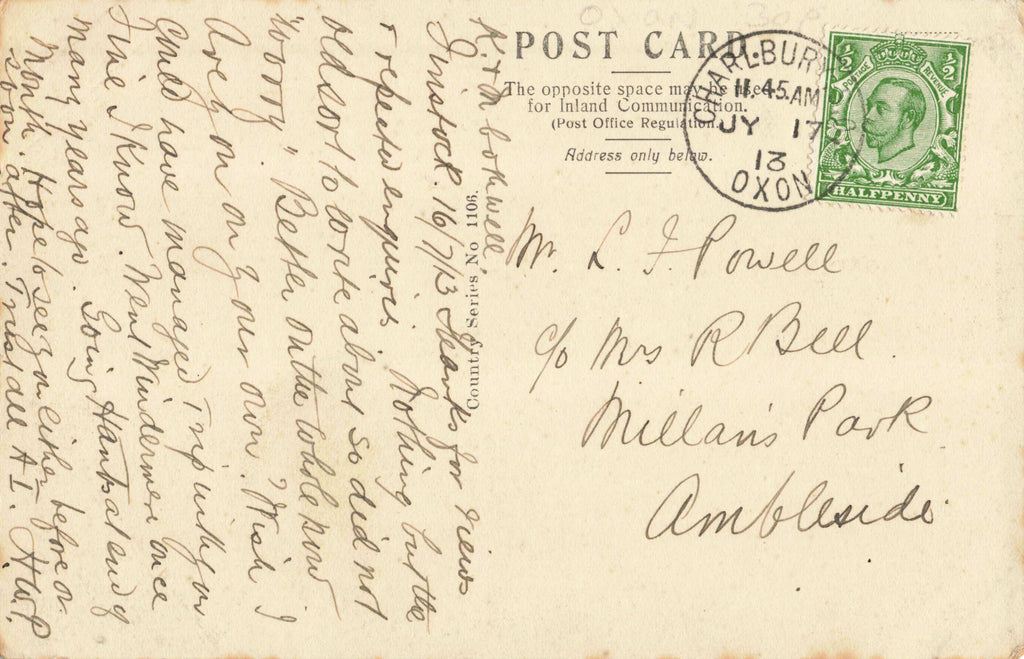 POST CARD
The opposite space may be used
for Inland Communication.
(Post Office Regulation.)
Address only below.
CHARLBURY
11.45 AM
JY 17
13
OXON
½ ½
POSTAGE REVENUE
HALFPENNY
Mr. L. F. Powell
c/o Mrs R Bell
Millans Park
Ambleside
Country Series No 1106.
Finstock. 16/7/13 Thanks for views
& repeated enquiries Nothing but the
address to write about so did not
"worry" Better on the whole now
Are you on your own? Wish I
could have managed trip with you
Fine I know. Went Windermere once
many years ago. Going Hants at end of
Month. Hope to see you either before or
soon after. Trust all A1. H.W.P